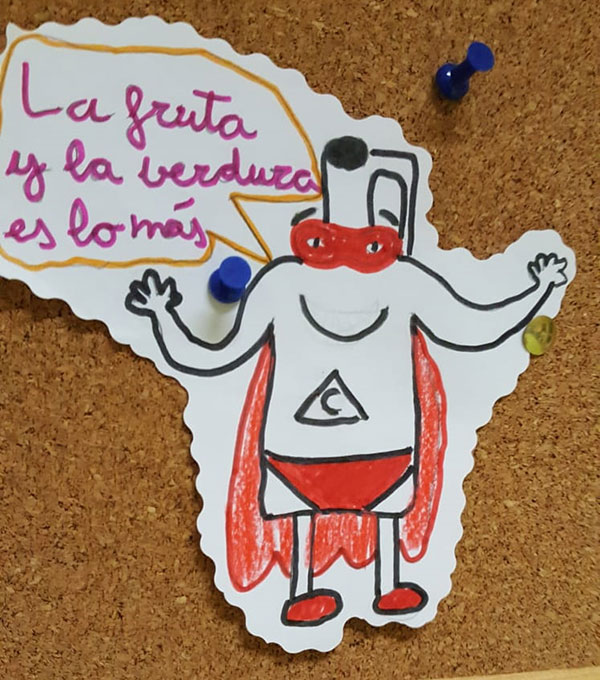 La fruta
y la verdura
es lo más
C